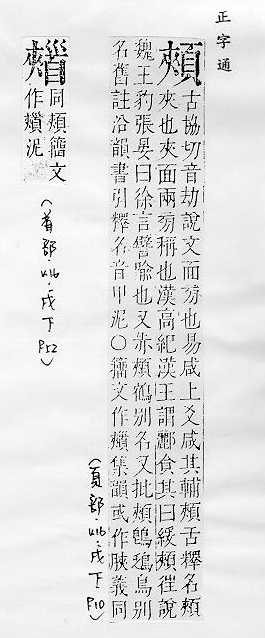 正字通
頰
古協切音劫說文面旁也易咸上爻咸其輔頰舌釋名頰
夾也夾面兩旁稱也漢高紀漢王謂酈食其曰緩頰往說
魏王豹張晏曰徐言譬喻也又赤頰鶴別名又批頰鵖鴔鳥別
名舊註沿韻書引釋名音甲泥○籀文作䫛集韻或作脥義同
(頁部.416.戌下P10)
同頰籀文
作䫛泥
(首部.416.戌下P52)